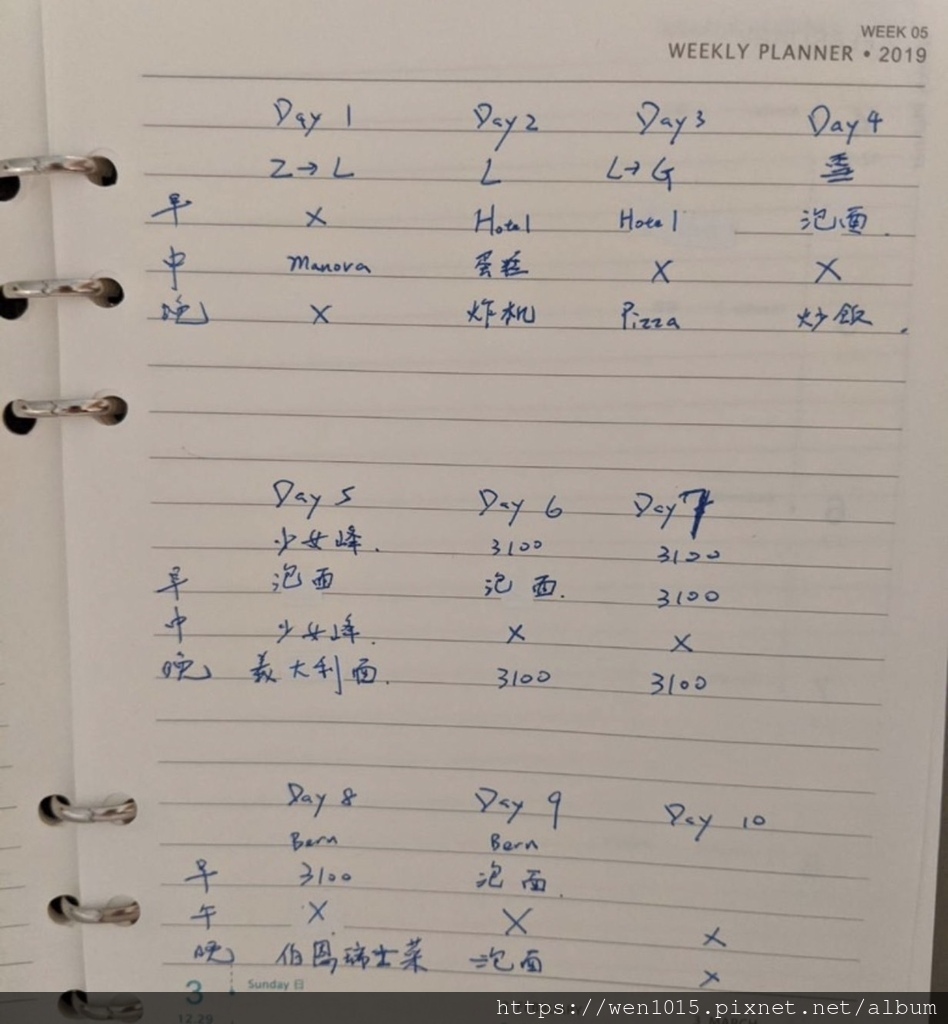 WEEK 05
WEEKLY PLANNER • 2019
Day 1 Day 2 Day 3 Day 4
Z→L L L→G
早 X Hotel Hotel 泡面.
中 Manora 蛋糕 X X
晚 X 炸机 Pizza 炒飯.
Day 5 Day 6 Day 7
少女峰. 3100 3100
早 泡面 泡面. 3100
中 少女峰. X X
晚 義大利面. 3100 3100
Day 8 Day 9 Day 10
Bern Bern
早 3100 泡面.
午 X X X
晚 伯恩瑞士菜 泡面 X
3 Sunday 日
12.29
https://wen1015.pixnet.net/album